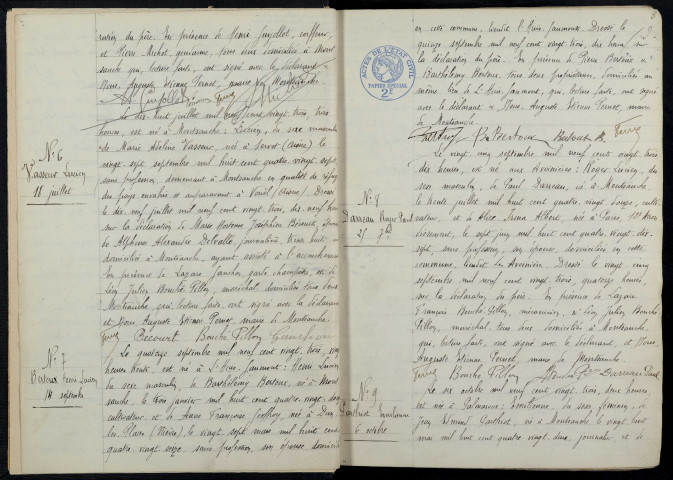 ration du père. En présence de
et Pierre Michot, gendarme, tous deux domiciliés à Mont
sauche qui, lecture faite, ont signé avec le déclarant
Nous, Auguste Etienne Perret, maire de Montsauche
Le dix-huit juillet mil neuf cent vingt trois, trois
heures, est né à Montsauche: Lucien, du sexe masculin
de Marie Adeline Vasseur, née à
vingt sept septembre mil huit cent quatre vingt sept
sans profession, demeurant à Montsauche en qualité de
et auparavant à (Aisne). Dressé
le dix neuf juillet mil neuf cent vingt trois, dix-neuf heures
sur la déclaration de Marie
de Alphonse Alexandre Delvalle, journalière, trente huit
domiciliée à Montsauche, ayant assisté à l'accouchement
En présence de Lazare Gauchon, garde champêtre, et de
Léon Julien Bouché-Pillon, maréchal, domiciliés tous deux
Montsauche, qui, lecture faite, ont signé avec la déclarante
et Nous Auguste Etienne Perret, maire de Montsauche.
Perret Bécourt Bouché-Pillon Gauchon
Le quatorze septembre mil neuf cent vingt trois, vingt
heures trente, est né à L'Huis-Jaumont: Pierre Lucien
du sexe masculin, de Barthélemy Bertoux, né à Mont
sauche, le trois janvier mil huit cent quatre vingt
cultivateur et de Anne Françoise Joffroy, née à Dun
les Places (Nièvre), le vingt sept mars mil huit cent
quatre vingt seize, sans profession, son épouse, domiciliés
N° 6
Vasseur Lucien
18 juillet
N° 7
Bertoux Pierre Lucien
14 septembre
en cette commune, lieudit l'Huis-Jaumont. Dressé le
quinze septembre mil neuf cent vingt trois, dix heures sur
la déclaration du père. En présence de Pierre Bertoux et
Barthélemy Bertoux, tous deux propriétaires, domiciliés au
même lieu de L'Huis-Jaumont, qui, lecture faite, ont signé
avec le déclarant et Nous Auguste Etienne Perret, maire
de Montsauche.
Bertoux Bertoux B. Perret
Le vingt cinq septembre mil neuf cent vingt trois
dix heures, est né aux: Roger Lucien, du
sexe masculin, de Paul Darreau, né à Montsauche,
le trente juillet mil huit cent quatre vingt douze, culti
vateur, et de Alice Irma Albert, née à Paris, 10e Arron
dissement, le sept juin mil huit cent quatre vingt dix
sept, sans profession, son épouse, domiciliés en cette
commune, lieudit les. Dressé le vingt cinq
septembre mil neuf cent vingt trois, quatorze heures,
sur la déclaration du père. En présence de Lazare
François Bouché-Pillon, mécanicien, et Léon Julien Bouché
Pillon, maréchal, tous deux domiciliés à Montsauche
qui, lecture faite, ont signé avec le déclarant, et Nous,
Auguste Etienne Perret, maire de Montsauche
Perret Bouché Pillon Bouché Darreau Paul
Le six octobre mil neuf cent vingt trois, deux heures,
est née à Palmaroux: Emilienne, du sexe féminin, de
Jean Edmond, né à Montsauche le vingt huit
mai mil huit cent quatre vingt deux, journalier, et de
ACTES DE L'ÉTAT CIVIL
PAPIER SPÉCIAL
2F
N° 8
Darreau Roger Paul
25 7bre
N° 9
Emilienne
6 octobre